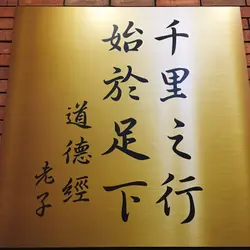 千里之行
始於足下
道德經
老子